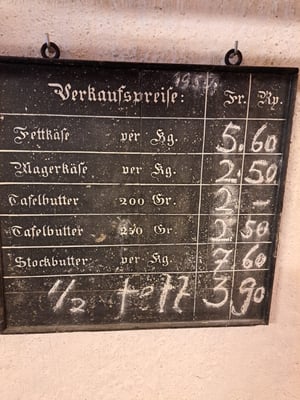 Verkaufspreise: Fr. Rp.
Fettkäse per Kg. 5. 60
Magerkäse per Kg. 2. 50
Tafelbutter 200 Gr. 2 -
Tafelbutter 250 Gr. 2 50
Stockbutter per Kg. 7 60
1/2 fett 3 90